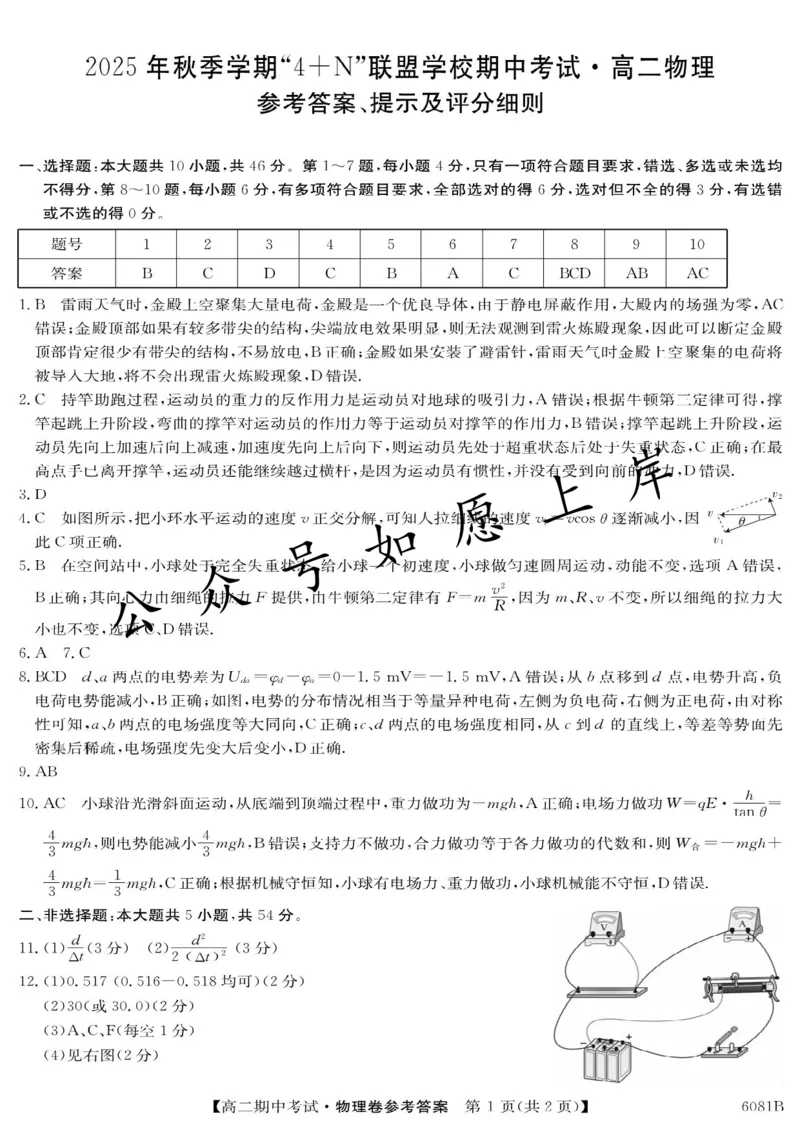 2025 年秋季学期“4+N”联盟学校期中考试·高二物理
参考答案、提示及评分细则
一、选择题:本大题共 10 小题,共 46 分。第 1～7 题,每小题 4 分,只有一项符合题目要求,错选、多选或未选均
不得分,第 8～10 题,每小题 6 分,有多项符合题目要求,全部选对的得 6 分,选对但不全的得 3 分,有选错
或不选的得 0 分。
题号 1 2 3 4 5 6 7 8 9 10
答案 B C D C B A C BCD AB AC
1. B 雷雨天气时,金殿上空聚集大量电荷,金殿是一个优良导体,由于静电屏蔽作用,大殿内的场强为零,AC
错误;金殿顶部如果有较多带尖的结构,尖端放电效果明显,则无法观测到雷火炼殿现象,因此可以断定金殿
顶部肯定很少有带尖的结构,不易放电,B 正确;金殿如果安装了避雷针,雷雨天气时金殿上空聚集的电荷将
被导入大地,将不会出现雷火炼殿现象,D 错误.
2. C 持竿助跑过程,运动员的重力的反作用力是运动员对地球的吸引力,A 错误;根据牛顿第三定律可得,撑
竿起跳上升阶段,弯曲的撑竿对运动员的作用力等于运动员对撑竿的作用力,B 错误;撑竿起跳上升阶段,运
动员先向上加速后向上减速,加速度先向上后向下,则运动员先处于超重状态后处于失重状态,C 正确;在最
高点手已离开撑竿,运动员还能继续越过横杆,是因为运动员有惯性,并没有受到向前的冲力,D 错误.
3. D
4. C 如图所示,把小环水平运动的速度 v 正交分解,可知人拉细绳的速度 v₁=vcos θ 逐渐减小,因
此 C 项正确.
v v₂ θ v₁
5. B 在空间站中,小球处于完全失重状态,给小球一个初速度,小球做匀速圆周运动,动能不变,选项 A 错误,
B 正确;其向心力由细绳的拉力 F 提供,由牛顿第二定律有 F=m v²/R,因为 m、R、v 不变,所以细绳的拉力大
小也不变,选项 C、D 错误.
6. A 7. C
8. BCD d、a 两点的电势差为 U_da=φ_d−φ_a=0−1.5 mV=−1.5 mV,A 错误;从 b 点移到 d 点,电势升高,负
电荷电势能减小,B 正确;如图,电势的分布情况相当于等量异种电荷,左侧为负电荷,右侧为正电荷,由对称
性可知,a、b 两点的电场强度等大同向,C 正确;c、d 两点的电场强度相同,从 c 到 d 的直线上,等差等势面先
密集后稀疏,电场强度先变大后变小,D 正确.
9. AB
10. AC 小球沿光滑斜面运动,从底端到顶端过程中,重力做功为−mgh,A 正确;电场力做功 W=qE·h/tan θ=
4/3 mgh,则电势能减小 4/3 mgh,B 错误;支持力不做功,合力做功等于各力做功的代数和,则 W合=−mgh+
4/3 mgh=1/3 mgh,C 正确;根据机械守恒知,小球有电场力、重力做功,小球机械能不守恒,D 错误.
二、非选择题:本大题共 5 小题,共 54 分。
11. (1) d/Δt (3 分) (2) d²/2(Δt)² (3 分)
12. (1)0.517 (0.516−0.518 均可)(2 分)
(2)30(或 30.0)(2 分)
(3)A、C、F(每空 1 分)
(4)见右图(2 分)
V A
− +
公众号如愿上岸
【高二期中考试·物理卷参考答案 第 1 页(共 2 页)】 6081B